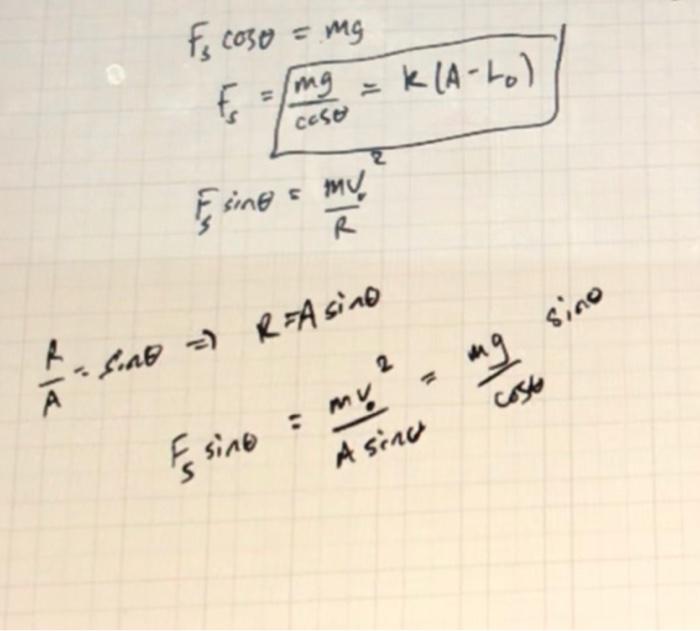 F_s cosθ = mg
F_s = mg/cosθ = k(A-L₀)
F_s sinθ = mv₀²/R
R/A = sinθ ⇒ R=A sinθ
F_s sinθ = mv₀²/A sinθ = mg/cosθ sinθ